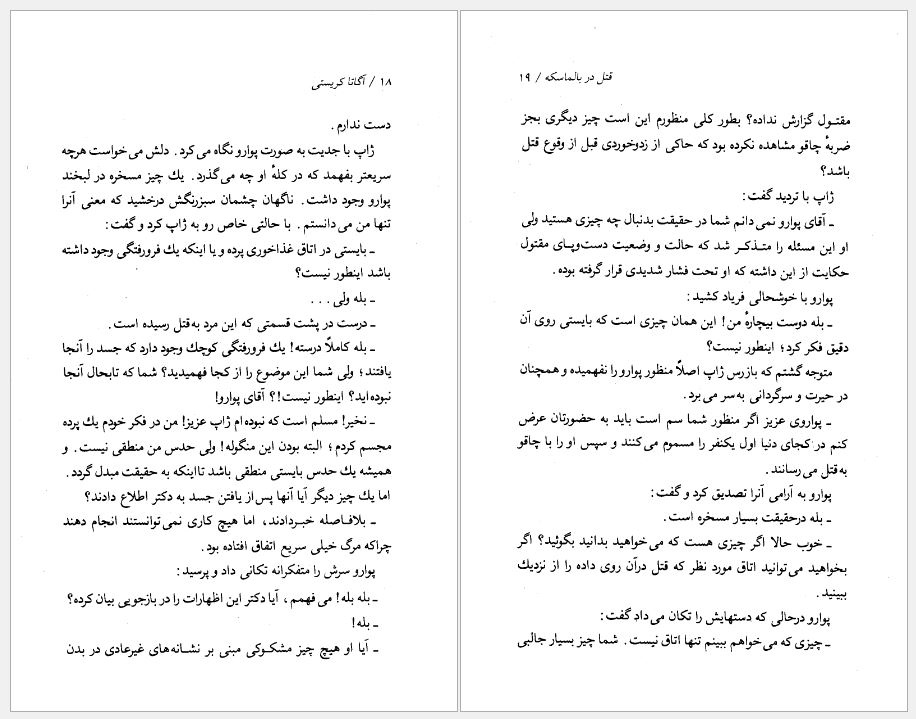 ۱۸ / آگاتا کریستی
دست ندارم.
ژاپ با جدیت به صورت پوارو نگاه می‌کرد. دلش می‌خواست هرچه
سریعتر بفهمد که در کلهٔ او چه می‌گذرد. یك چیز مسخره در لبخند
پوارو وجود داشت. ناگهان چشمان سبزرنگش درخشید که معنی آنرا
تنها من می‌دانستم. با حالتی خاص رو به ژاپ کرد و گفت:
ـ بایستی در اتاق غذاخوری پرده و یا اینکه یك فرورفتگی وجود داشته
باشد اینطور نیست؟
ـ بله ولی...
ـ درست در پشت قسمتی که این مرد به‌قتل رسیده است.
ـ بله کاملاً درسته! یك فرورفتگی کوچك وجود دارد که جسد را آنجا
یافتند؛ ولی شما این موضوع را از کجا فهمیدید؟ شما که تابحال آنجا
نبوده‌اید؟ اینطور نیست!؟ آقای پوارو!
ـ نخیر! مسلم است که نبوده‌ام ژاپ عزیز! من در فکر خودم یك پرده
مجسم کردم؛ البته بودن این منگوله! ولی حدس من منطقی نیست. و
همیشه یك حدس بایستی منطقی باشد تااینکه به حقیقت مبدل گردد.
اما یك چیز دیگر آیا آنها پس از یافتن جسد به دکتر اطلاع دادند؟
ـ بلافاصله خبردادند، اما هیچ کاری نمی‌توانستند انجام دهند
چراکه مرگ خیلی سریع اتفاق افتاده بود.
پوارو سرش را متفکرانه تکانی داد و پرسید:
ـ بله بله! می‌فهمم، آیا دکتر این اظهارات را در بازجویی بیان کرده؟
ـ بله!
ـ آیا او هیچ چیز مشکوکی مبنی بر نشانه‌های غیرعادی در بدن
قتل در بالماسکه / ۱۹
مقتول گزارش نداده؟ بطور کلی منظورم این است چیز دیگری بجز
ضربهٔ چاقو مشاهده نکرده بود که حاکی از زدوخوردی قبل از وقوع قتل
باشد؟
ژاپ با تردید گفت:
ـ آقای پوارو نمی‌دانم شما در حقیقت بدنبال چه چیزی هستید ولی
او این مسئله را متذکر شد که حالت و وضعیت دست‌وپای مقتول
حکایت از این داشته که او تحت فشار شدیدی قرار گرفته بوده.
پوارو با خوشحالی فریاد کشید:
ـ بله دوست بیچارهٔ من! این همان چیزی است که بایستی روی آن
دقیق فکر کرد؛ اینطور نیست؟
متوجه گشتم که بازرس ژاپ اصلاً منظور پوارو را نفهمیده و همچنان
در حیرت و سرگردانی به‌سر می‌برد.
ـ پواروی عزیز اگر منظور شما سم است باید به حضورتان عرض
کنم در کجای دنیا اول یکنفر را مسموم می‌کنند و سپس او را با چاقو
به‌قتل می‌رسانند.
پوارو به آرامی آنرا تصدیق کرد و گفت:
ـ بله درحقیقت بسیار مسخره است.
ـ خوب حالا اگر چیزی هست که می‌خواهید بدانید بگوئید؟ اگر
بخواهید می‌توانید اتاق مورد نظر که قتل درآن روی داده را از نزدیك
ببینید.
پوارو درحالی که دستهایش را تکان می‌داد گفت:
ـ چیزی که می‌خواهم ببینم تنها اتاق نیست. شما چیز بسیار جالبی